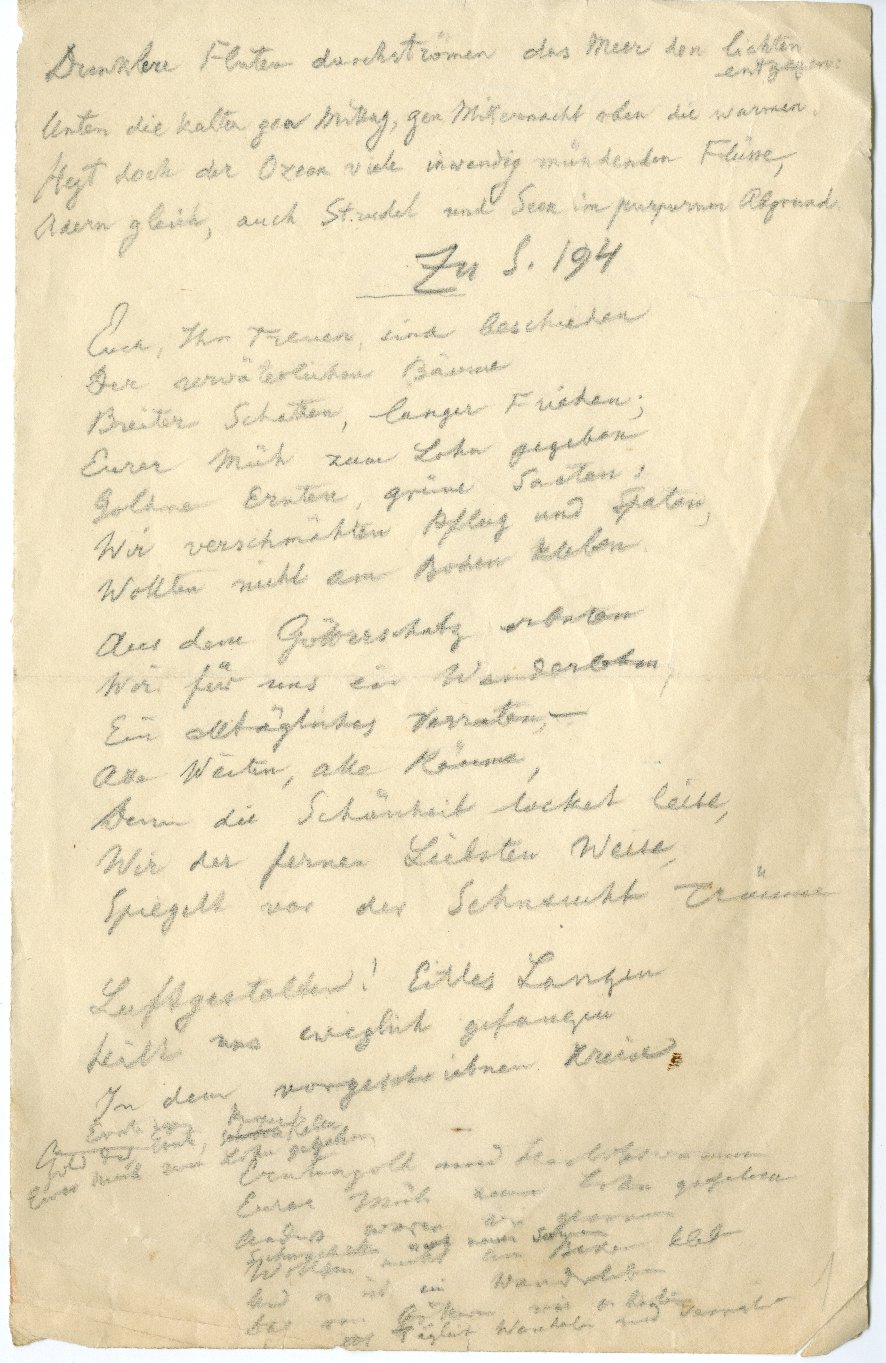 Dunklere Fluten durchströmen das Meer den lichten
entgegen:
Unten die kalten gen Mittag, gen Mitternacht oben die warmen.
Hegt doch der Ozean viele inwendig mündenden Flüsse,
Adern gleich, auch Strudel und Seen im purpurnen Abgrund
Zu S. 194
Euch, Ihr Treuen, sind beschieden
Der urväterlichen Bäume
Breiter Schatten, langer Frieden;
Eurer Müh zum Lohn gegeben
Goldne Ernten, grüne Saaten;
Wir verschmähten Pflug und Spaten,
Wollten nicht am Boden kleben
Aus dem Götterschatz erbaten
Wir für uns ein Wanderleben,
Ein alltägliches Verraten, –
Alle Weiten, alle Räume,
Denn die Schönheit locket leise,
Wir der fernen Liebsten Weise,
Spiegelt vor der Sehnsucht Träume
Luftgestalten! Eitles Langen
Hält uns ewiglich gefangen
In dem vorgeschriebnen Kreise
Gold der Ernte,
Eurer Müh zum Lohn gegeben
Erntengold und
Eurer Müh zum Lohn gegeben
Anders waren wir
Wollten nicht am Boden kleb
Und es ist ein Wanderleben
Das von Göttern wir erbaten
täglich Wandeln und Verraten